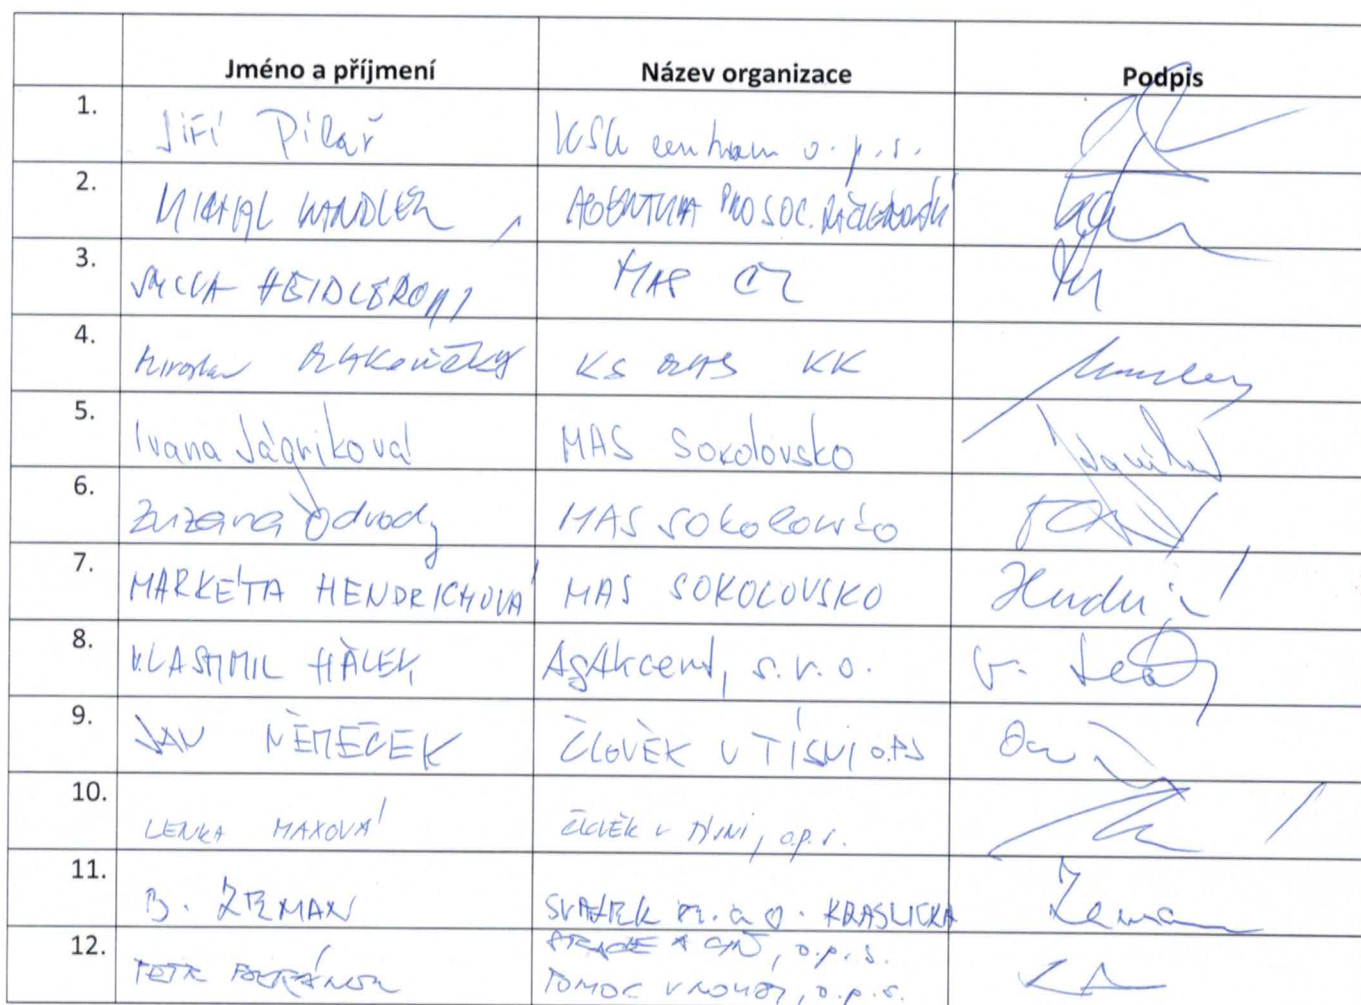 Jméno a příjmení Název organizace Podpis
1. Jiří Pilař KSK centrum o.p.s.
2. MICHAL KANDLER AGENTURA PRO SOC. ZAČLEŇOVÁNÍ
3. HEIDLEROVÁ MAS
4. Miroslav KS MAS KK
5. Ivana Jágriková MAS Sokolovsko
6. Zuzana Odvody MAS SOKOLOVSKO
7. MARKÉTA HENDRICHOVÁ MAS SOKOLOVSKO
8. VLASTIMIL HÁLEK AgAkcent, s.r.o.
9. JAN NĚMEČEK ČLOVĚK V TÍSNI O.P.S
10. LENKA MAXOVÁ ČLOVĚK V TÍSNI, o.p.s.
11. B. ZEMAN SVAZEK m. a o. KRASLICKA Zeman
12. PETR o.p.s.
POMOC V NOUZI, o.p.s.